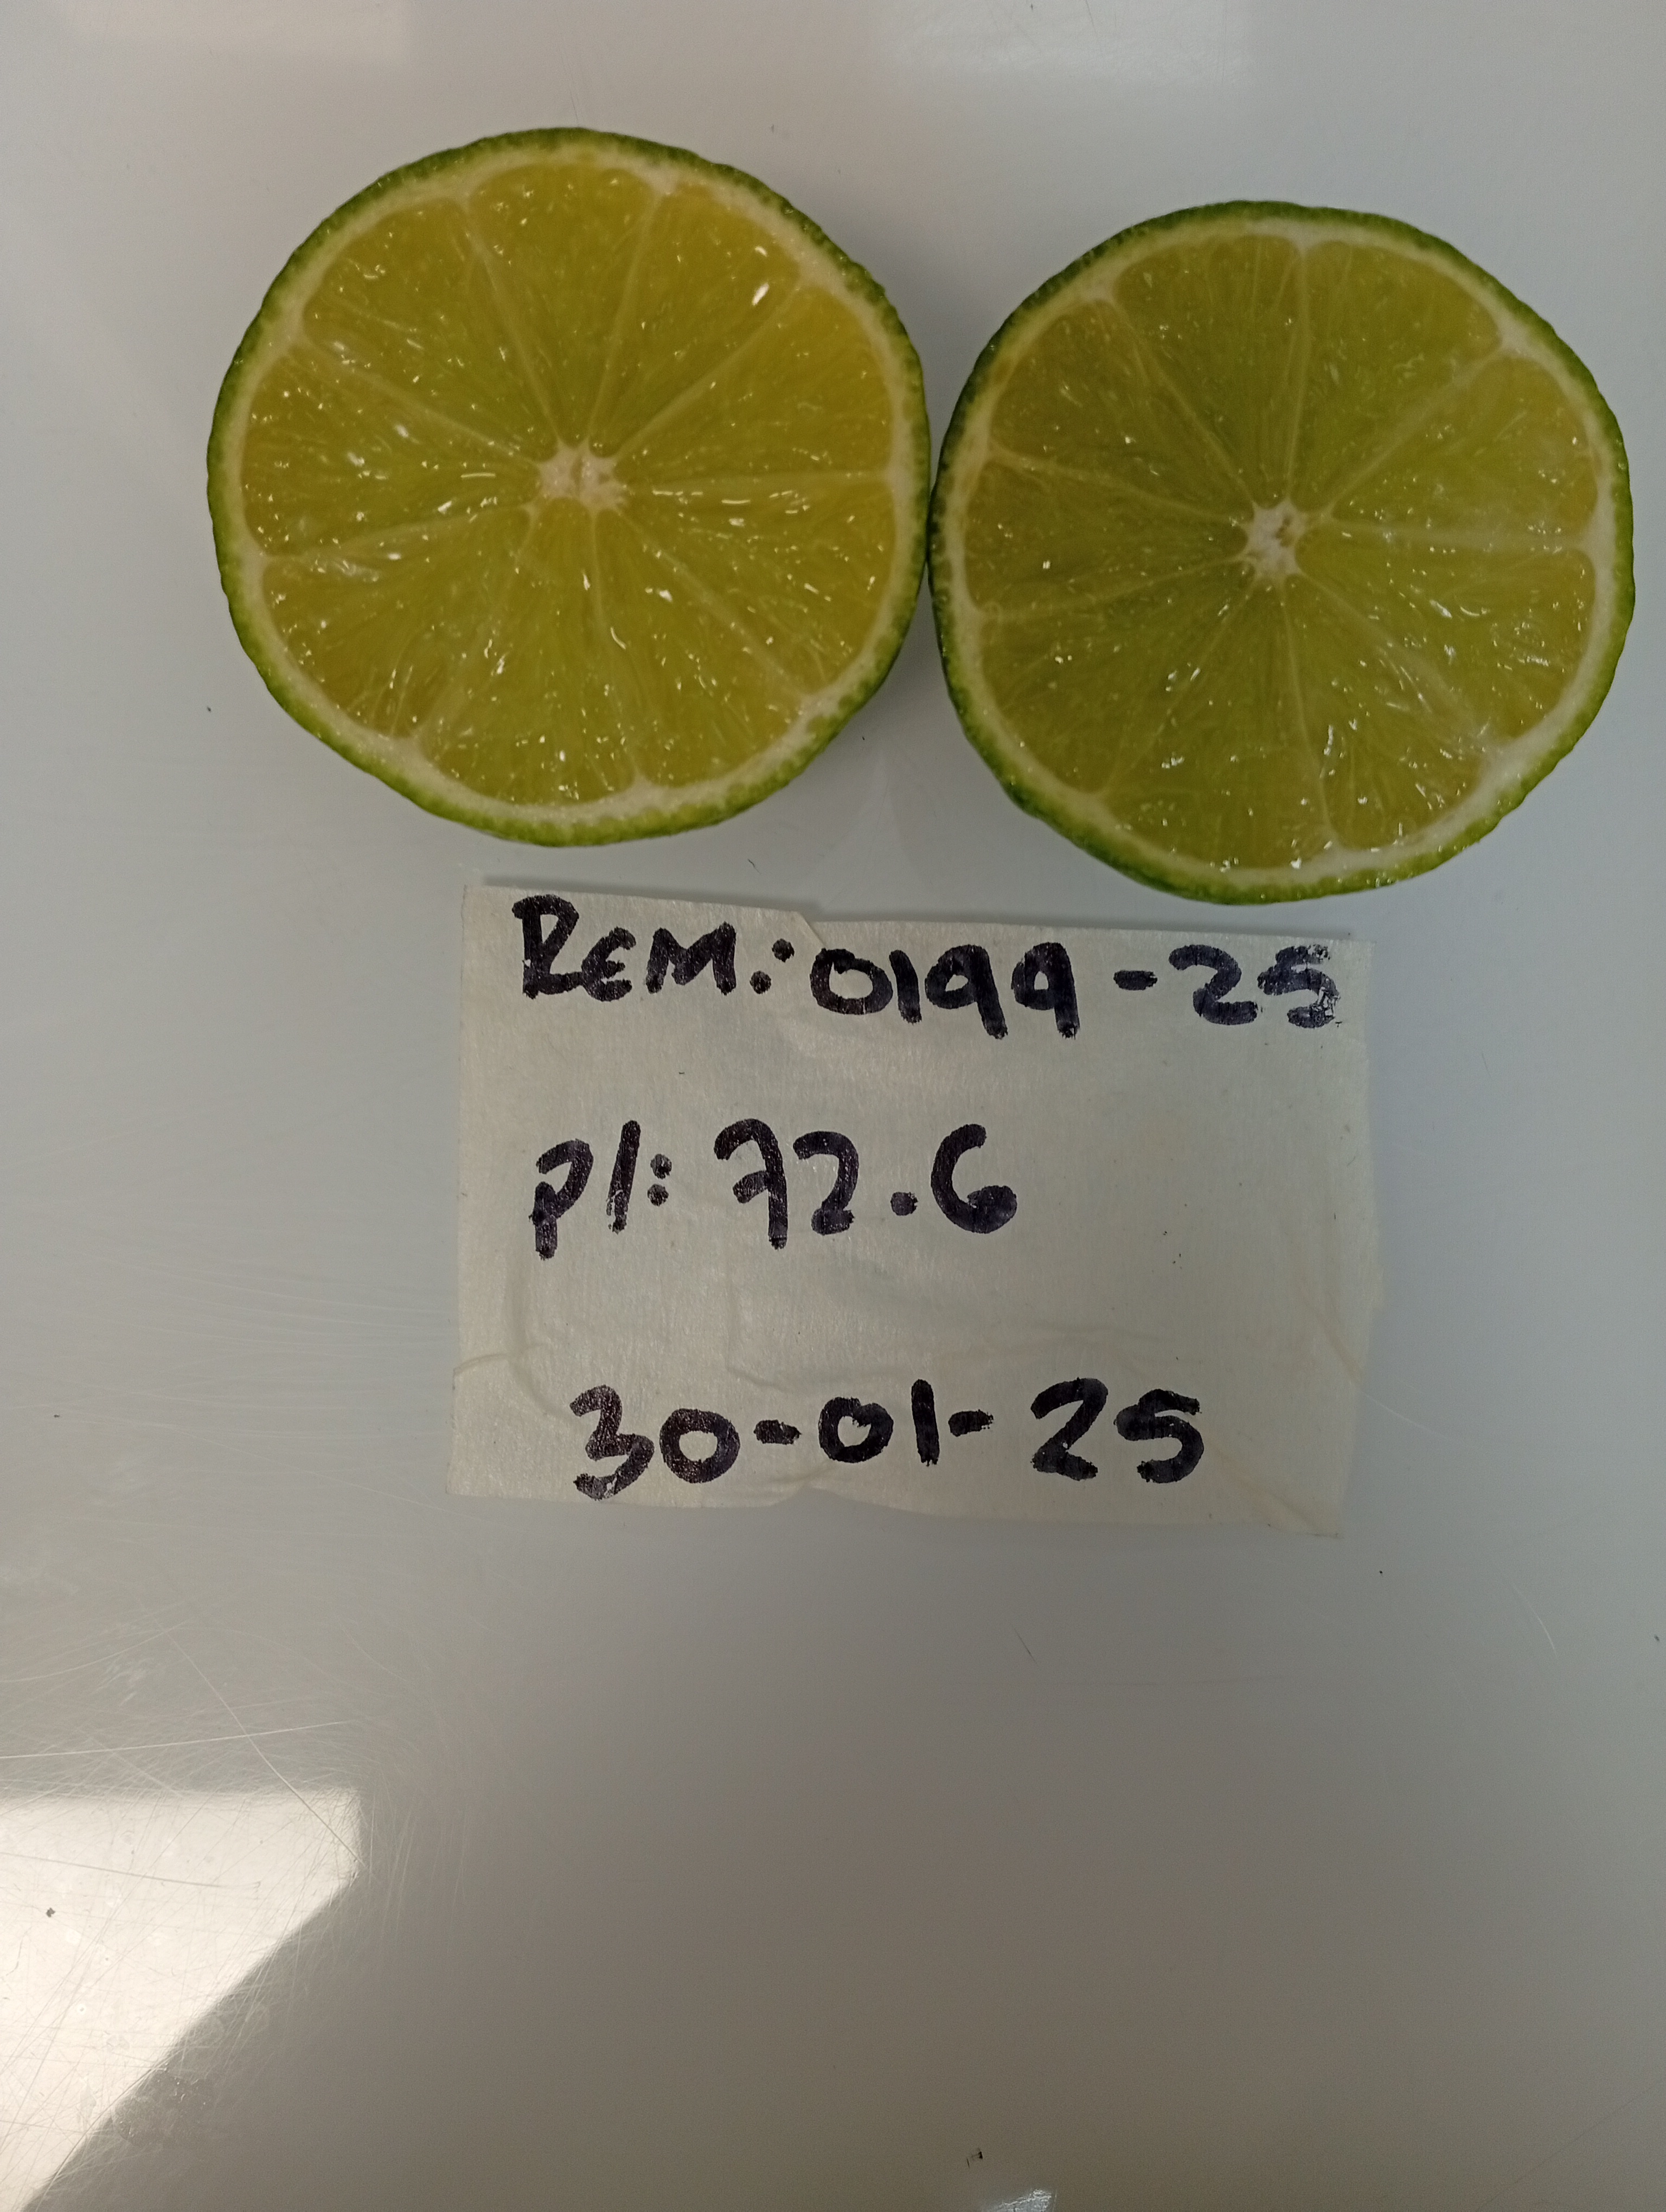 REM.: 0199-25
P/: 72.6
30-01-25